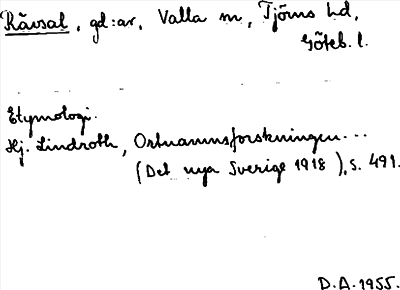 Rävsal, gd:ar, Valla sn, Tjörns hd,
Göteb. l.
Etymologi.
Hj. Lindroth, Ortnamnsforskningen...
(Det nya Sverige 1918), s. 491.
D.A. 1955.